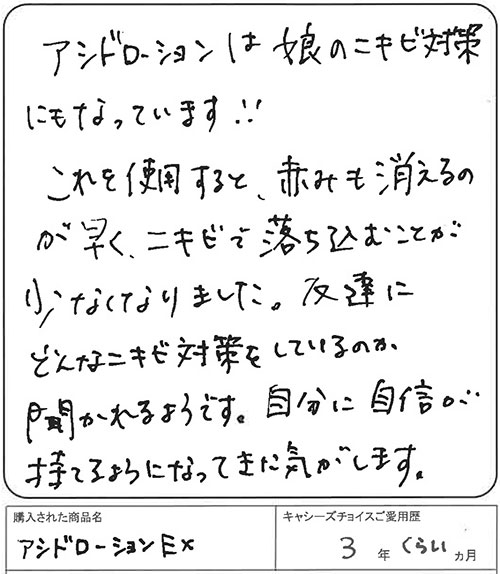 アシドローションは娘のニキビ対策
にもなっています!!
これを使用すると、赤みも消えるの
が早く、ニキビで落ち込むことが
少なくなりました。友達に
どんなニキビ対策をしているのか
聞かれるようです。自分に自信が
持てるようになってきた気がします。
購入された商品名
アシドローションEX
キャシーズチョイスご愛用歴
3年くらいヵ月